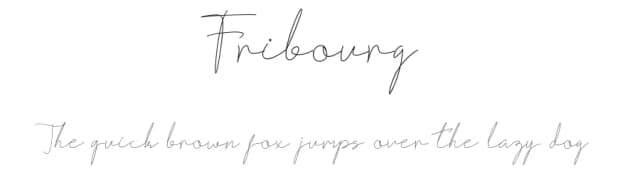 Fribourg
The quick brown fox jumps over the lazy dog